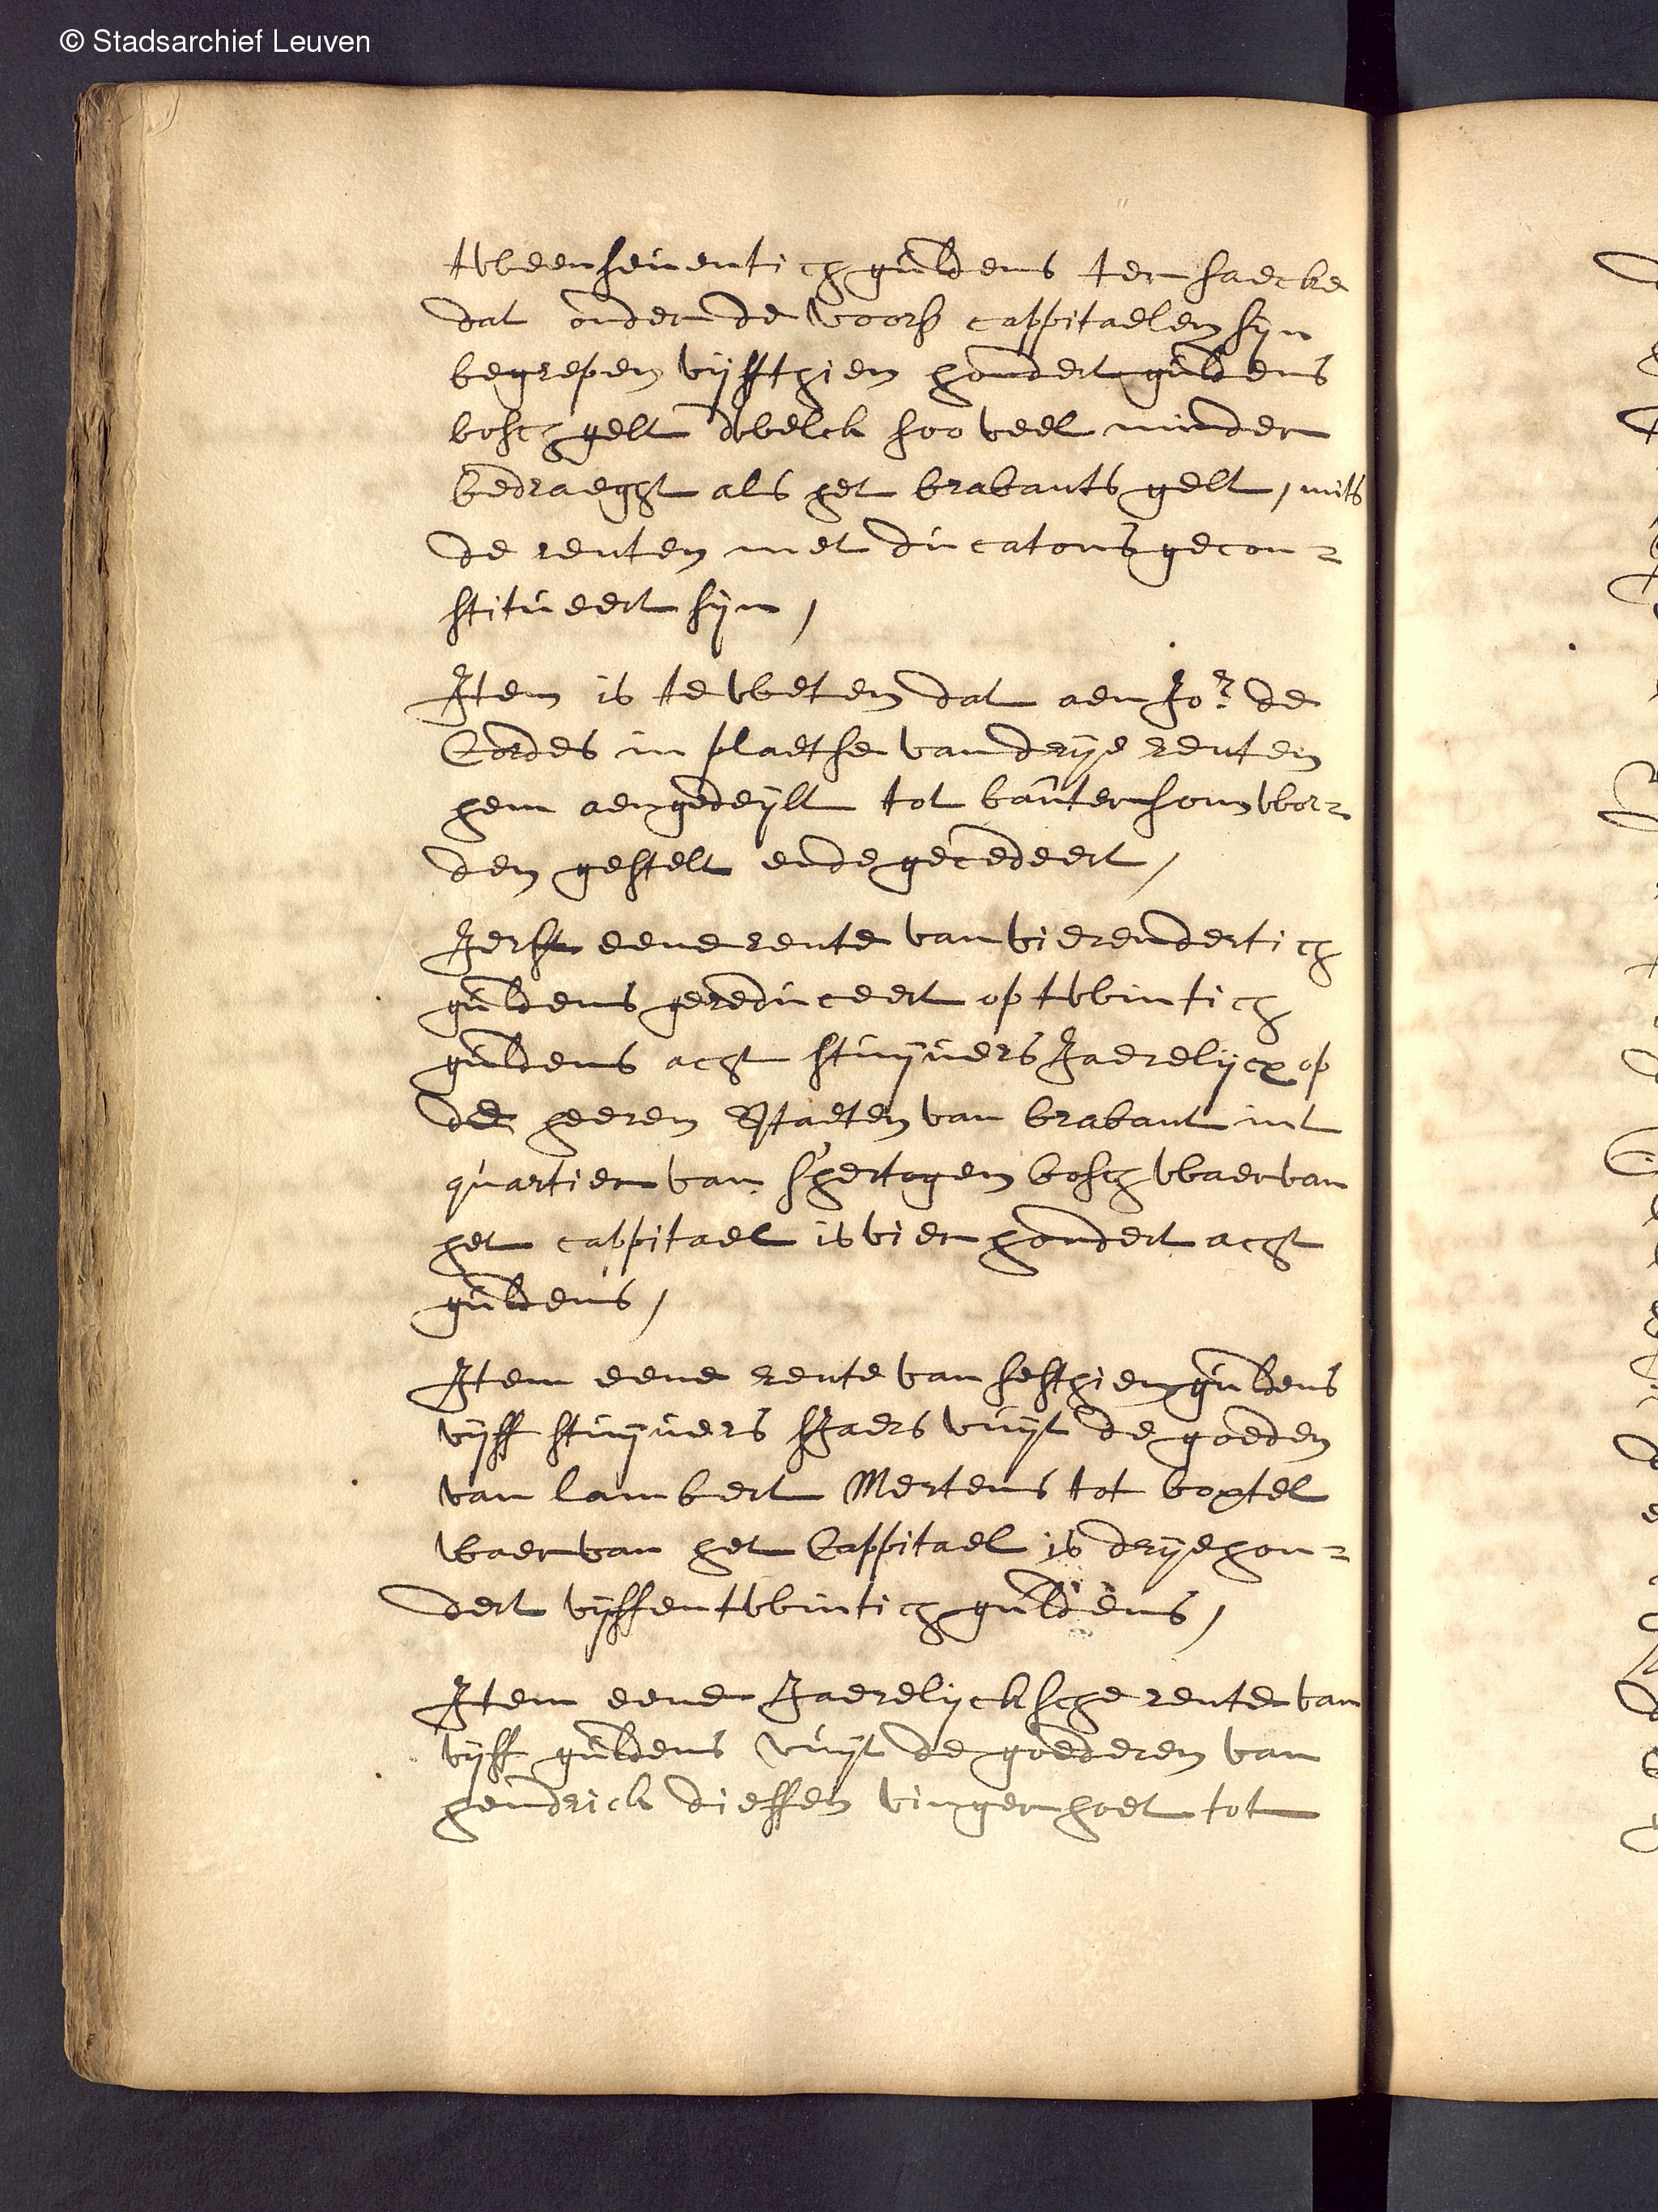 © Stadsarchief Leuven
tweenseventich guldens ter saecke
dat onder de voors cappitaelen syn
begrepen vijffthien hondert guldens
bosch gelt dwelck soo veel minder
bedraeght als het brabants gelt, mits
de renten met ducatons gecon-
stitueert syn,
Item is te weten dat aen Jor de
Cordes in plaetse van drye renten
hem aengedeylt tot bautersom wor-
den gestelt ende gecedeert,
Ierst eene rente van vierendertich
guldens gereduceert op twintich
guldens acht stuyvers Jaerelycx op
de heeren Staeten van brabant int
quartier van s'hertogen bosch waer van
het cappitael is vier hondert acht
guldens,
Item eene rente van sesthien guldens
vyff stuyvers sJaers vuyt de goeden
van lambert Mertens tot boxtel
waer van het Cappitael is drye hon-
dert vyffentwintich guldens,
Item eene Jaerelycksche rente van
vyff guldens vuyt de goederen van
hendrick dieffen vingerhoet tot